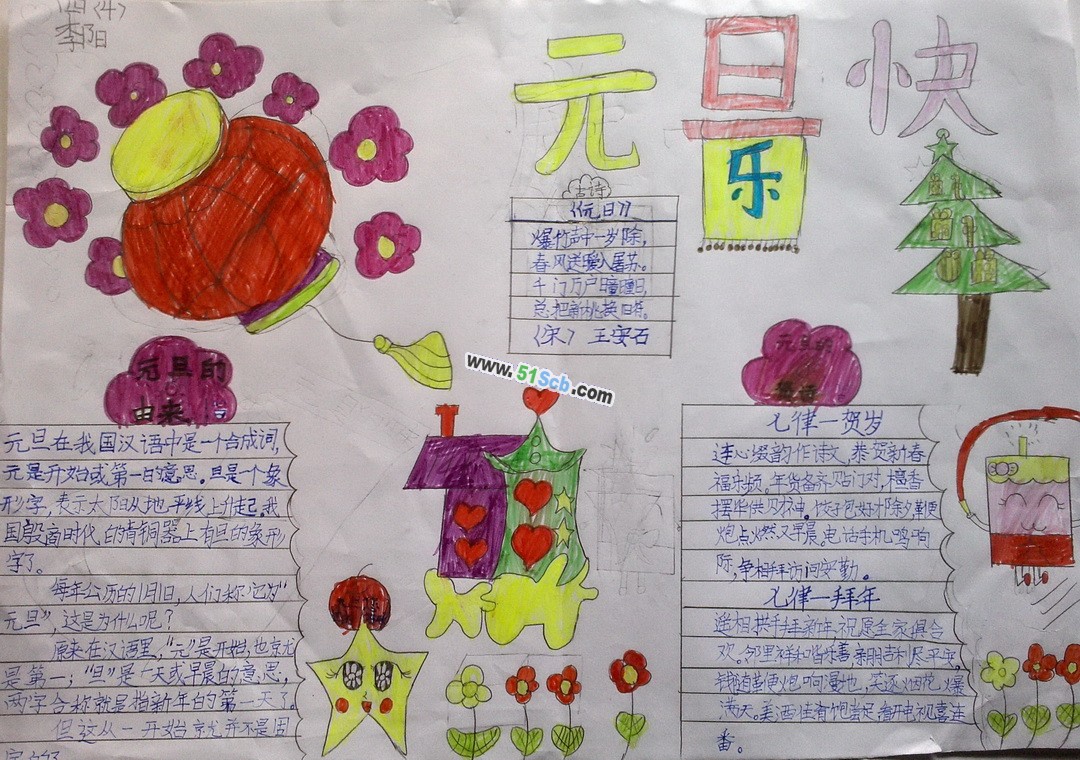 四(4)
李阳
元旦快
乐
古诗
《元日》
爆竹声中一岁除,
春风送暖入屠苏。
千门万户曈曈日,
总把新桃换旧符。
(宋) 王安石
www.51Scb.com
元旦的
由来
元旦在我国汉语中是一个合成词,
元是开始或第一的意思。旦是一个象
形字,表示太阳从地平线上升起。我
国殷商时代的青铜器上有旦的象形
字了。
每年公历的1月1日,人们称它为“
元旦”,这是为什么呢?
原来在汉语里,“元”是开始,也就
是第一;“旦”是一天或早晨的意思,
两字合称就是指新年的第一天了。
但这从一开始就并不是固
定的
元旦的
七律一贺岁
连心缀韵作诗文,恭贺新春
福乐频。年货备齐贴门对,檀香
摆华供财神。饺子包好邪除夕,鞭
炮点燃又早晨。电话手机鸣响
际,争相拜访问安勤。
七律一拜年
递相拱手拜新年,祝愿全家俱合
欢。邻里祥和谐乐善,亲朋吉利尽平安。
鞭炮响漫地,笑逐烟花爆
满天。美酒佳肴饱尝足,看电视喜连
番。